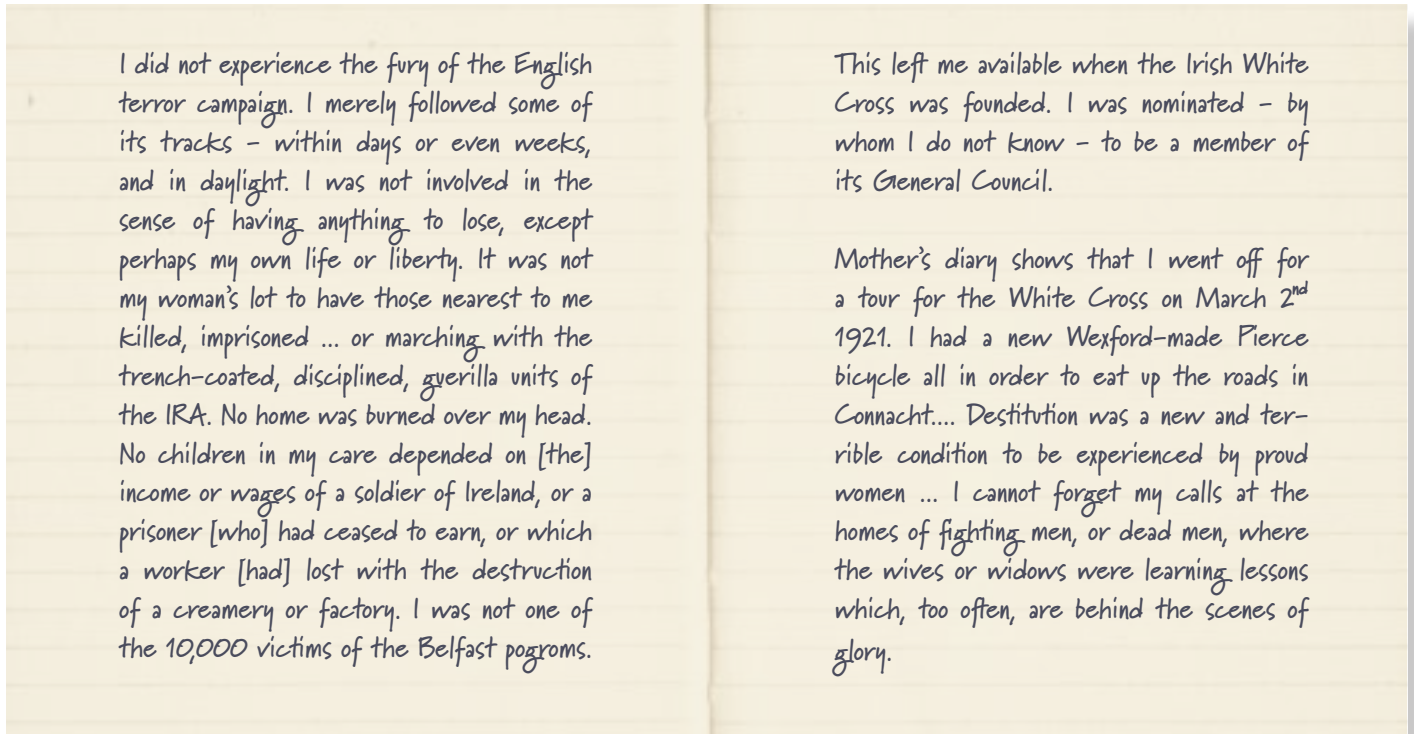 I did not experience the fury of the English
terror campaign. I merely followed some of
its tracks – within days or even weeks,
and in daylight. I was not involved in the
sense of having anything to lose, except
perhaps my own life or liberty. It was not
my woman's lot to have those nearest to me
killed, imprisoned ... or marching with the
trench-coated, disciplined, guerilla units of
the IRA. No home was burned over my head.
No children in my care depended on [the]
income or wages of a soldier of Ireland, or a
prisoner [who] had ceased to earn, or which
a worker [had] lost with the destruction
of a creamery or factory. I was not one of
the 10,000 victims of the Belfast pogroms.
This left me available when the Irish White
Cross was founded. I was nominated – by
whom I do not know – to be a member of
its General Council.
Mother's diary shows that I went off for
a tour for the White Cross on March 2nd
1921. I had a new Wexford-made Pierce
bicycle all in order to eat up the roads in
Connacht.... Destitution was a new and ter-
rible condition to be experienced by proud
women ... I cannot forget my calls at the
homes of fighting men, or dead men, where
the wives or widows were learning lessons
which, too often, are behind the scenes of
glory.